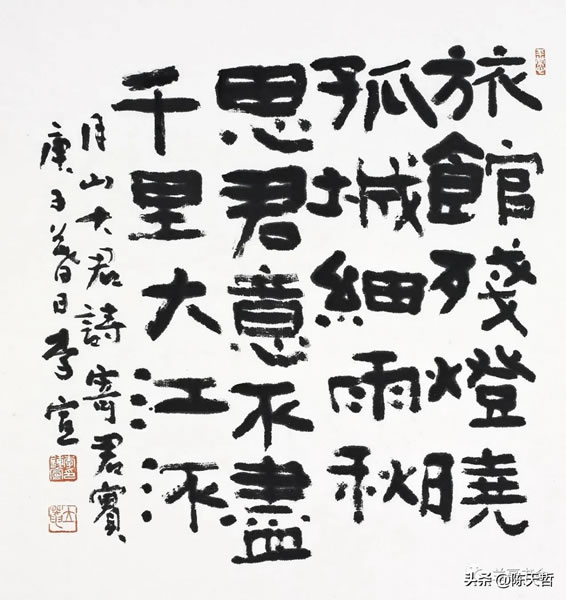 旅館殘燈曉
孤城細雨秋
思君意不盡
千里大江流
月山大君詩寄君實
庚子春日李宣
头条 @陈天哲